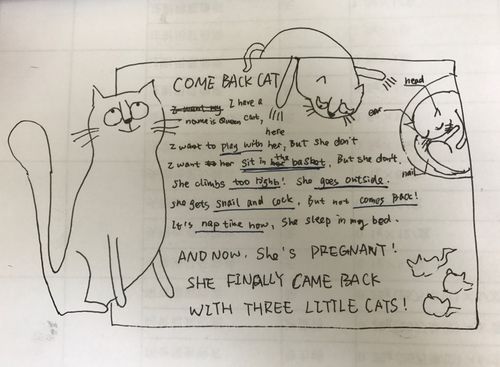 COME BACK CAT
I have a
name is Queen cat,
here
I want to play with her, But she don't
the
I want her sit in basket, But she don't.
She climbs too high! She goes outside.
she gets snail and cock, But not comes Back!
It's nap time now, She sleep in my bed.
AND NOW. She's PREGNANT!
SHE FINALLY CAME BACK
WITH THREE LITTLE CATS!
head
ear